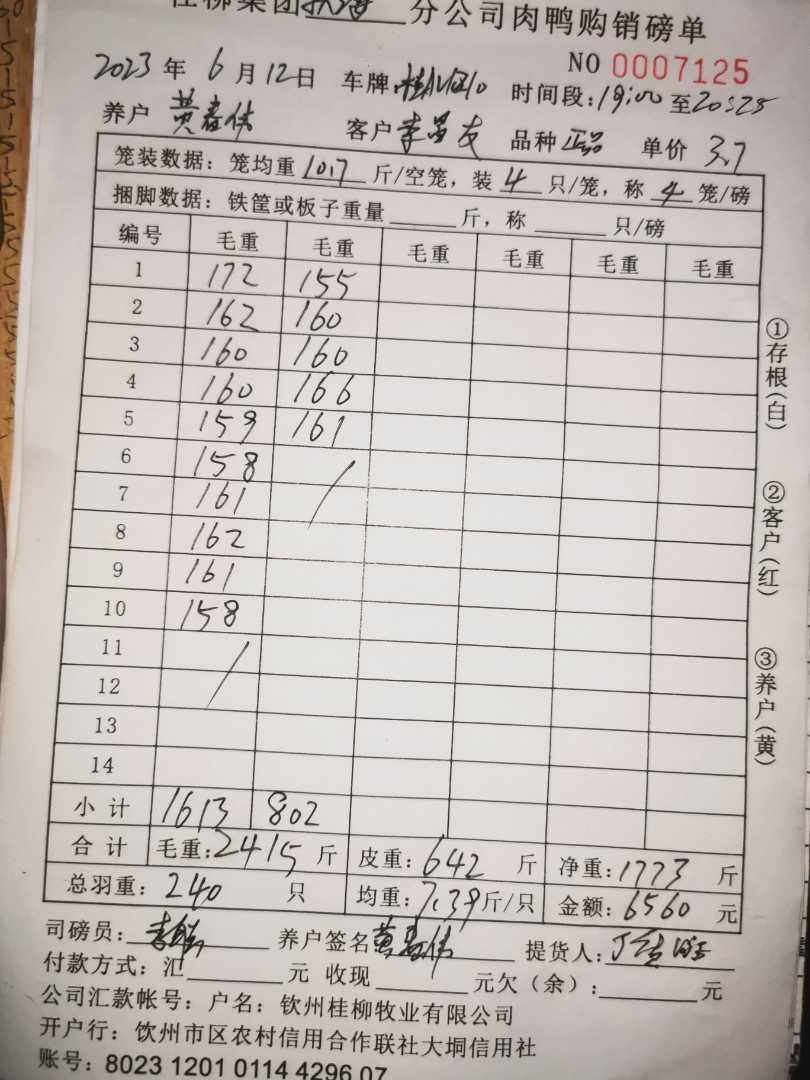 桂柳集团 分公司肉鸭购销磅单
NO 0007125
2023年6月12日 车牌 时间段:19:00至20:25
养户 黄春伟 客户 李昌友 品种 正品 单价 3.7
笼装数据：笼均重 10.7 斤/空笼，装 4 只/笼，称 4 笼/磅
捆脚数据：铁筐或板子重量 斤，称 只/磅
编号 毛重 毛重 毛重 毛重 毛重 毛重
1 172 155
2 162 160
3 160 160
4 160 166
5 159 161
6 158 /
7 161
8 162
9 161
10 158
11 /
12
13
14
小计 1613 802
合计 毛重:2415斤 皮重:642斤 净重:1773斤
总羽重:240只 均重:7.39斤/只 金额:6560元
司磅员: 养户签名 黄春伟 提货人:
付款方式：汇 元 收现 元欠（余）: 元
公司汇款帐号：户名：钦州桂柳牧业有限公司
开户行：饮州市区农村信用合作联社大垌信用社
账号：8023 1201 0114 4296 07
①存根(白)
②客户(红)
③养户(黄)